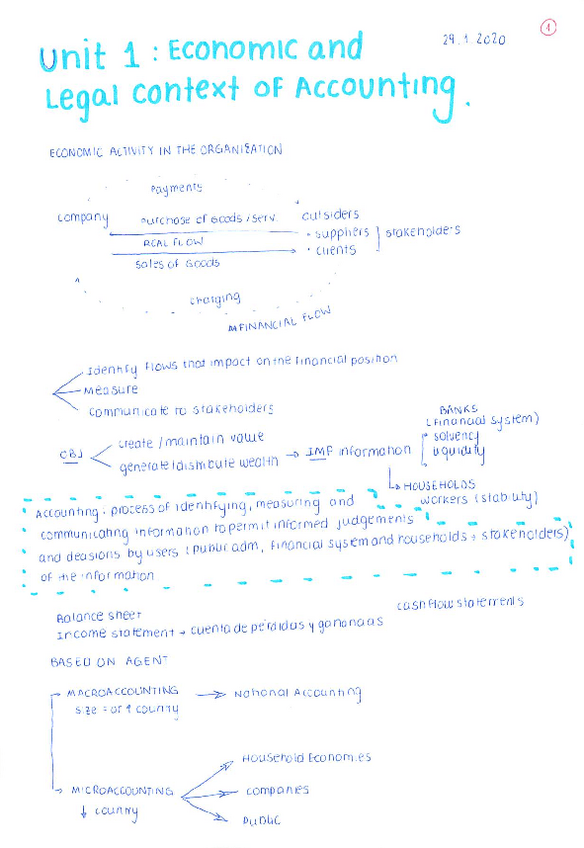 29.1.2020
1
Unit 1 : Economic and
Legal Context of Accounting.
ECONOMIC ACTIVITY IN THE ORGANISATION
Payments
company
Purchase of Goods / serv.
outsiders
REAL FLOW
• suppliers
• clients
stakeholders
sales of Goods
charging
FINANCIAL FLOW
Identify Flows that impact on the Financial position
Measure
communicate to stakeholders
OBJ
create / maintain value
generate / distribute wealth → IMP information
BANKS
(Financial system)
solvency
liquidity
HOUSEHOLDS
workers (stability)
Accounting: process of identifying, measuring and
communicating information to permit informed judgements
and decisions by users (public adm, Financial system and households + stakeholders)
of the information
Balance sheet
cash flow statements
Income statement → cuenta de perdidas y ganancias
BASED ON AGENT
MACROACCOUNTING → National Accounting
size = or ↑ country
MICROACCOUNTING
↓ country
Household Economies
companies
PUBLIC